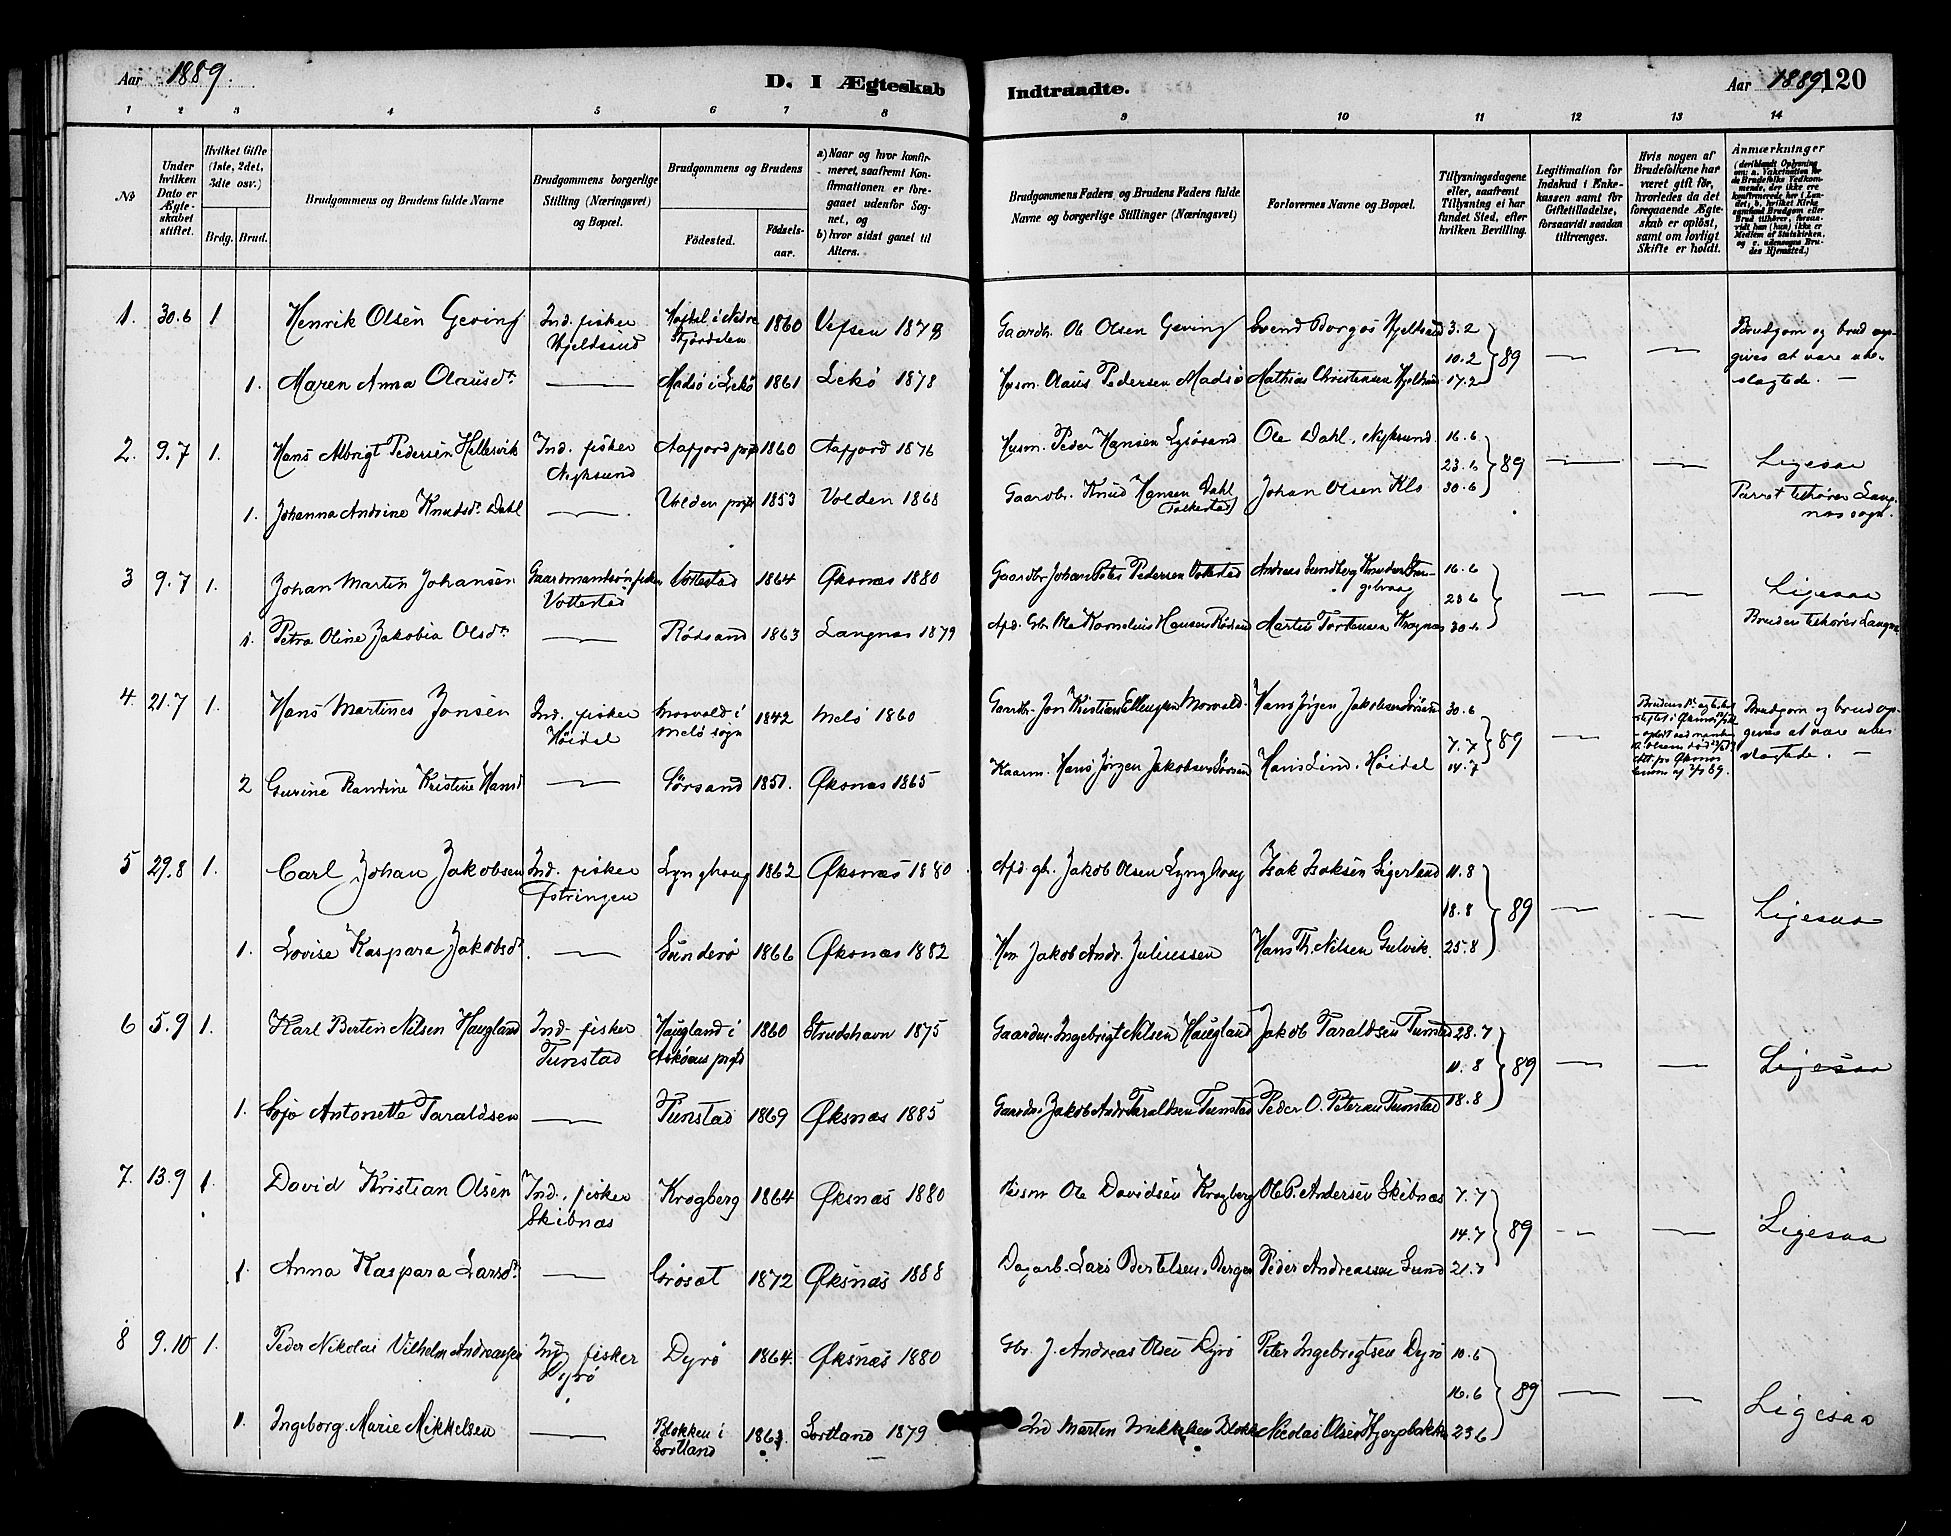 Aar 1889.
D. I Ægteskab
Indtraadte.
Aar 1889. 120
1 2 3 4 5 6 7 8 9 10 11 12 13 14
№
Under hvilken Dato er Ægteskabet stiftet.
Hvilket Gifte (1ste, 2det, 3die osv.)
Brdg. Brud.
Brudgommens og Brudens fulde Navne
Brudgommens borgerlige Stilling (Næringsvei) og Bopæl.
Brudgommens og Brudens
Födested.
Födsels-aar.
a) Naar og hvor konfirmeret, saafremt Konfirmationen er foregaaet udenfor Sognet, og
b) hvor sidst gaaet til Alters.
Brudgommens Faders og Brudens Faders fulde Navne og borgerlige Stillinger (Næringsvei)
Forlovernes Navne og Bopæl.
Tillysningsdagene eller, saafremt Tillysning ei har fundet Sted, efter hvilken Bevilling.
Legitimation for Indskud i Enkekassen samt for Giftetilladelse, forsaavidt saadan tiltrænges.
Hvis nogen af Brudefolkene har været gift för, hvorledes da det foregaaende Ægteskab er oplöst, samt om lovligt Skifte er holdt.
Anmærkninger
1. 30.6 1 Henrik Olsen Geving Ind. fisker 1860 Vefsen 1878 Gaardbr. Ole Olsen Geving Svend Borgos 3.2
10.2 } 89 — — Brudgom og brud opgives at være ubeslægtede. —
1. Maren Anna Olausdr. — Madsö i Lekö 1861 Lekö 1878 Husm. Olaus Pedersen Madsö Mathias Christensen 17.2
2. 9.7 1. Hans Albrigt Pedersen Hellesvik Ind. fisker Nyksund Aafjord prgd 1860 Aafjord 1876 Husm. Peder Hansen Lysösand Ole Dahl, Nyksund. 16.6
23.6 } 89 — — Ligesaa
1. Johanna Andrine Knudsdr. Dahl — Volden prgd 1853 Volden 1868 Gaardbr. Knud Hansen Dahl Johan Olsen Klo 30.6 Parret tilhörer Langnes sogn.
3 9.7 1. Johan Martin Johansen Gaardmandssön, fisker Vottestad Vottestad 1864 Øksnæs 1880 Gaardbr. Johan Pedersen Vottestad Andreas Sundberg 16.6
23.6 } — — Ligesaa
1. Petra Oline Jakobia Olsdr. — Rödsand 1863 Langnæs 1879 Afd. Gbr. Ole Kornelius Hansen Rödsand Martin Torstensen Kragnæs 30.6 Bruden tilhörer Langnes
4. 21.7 1. Hans Martines Jonsen Ind. fisker Höidal Morvald i Melö sogn 1842 Melö 1860 Gaardbr. Jon Kristian Ellingsen Morvald. Hans Jörgen Jakobsen Sörsan 30.6
7.7 } 89 — Brudgom og brud opgives at være ubeslægtede. —
2 Gurine Randine Kristine Hansd — Sörsand 1851. Øksnæs 1865 Kaarm. Hans Jörgen Jakobsen Sörsan Hans Lind. Höidal 14.7
5 29.8 1. Carl Johan Jakobsen Ind. fisker Lynghaug 1862 Øksnæs 1880 Afd. gbr. Jakob Olsen Lynghaug Isak Isaksen Sigerland 11.8
18.8 } 89 — — Ligesaa
1. Lovise Kaspara Jakobsdr. — Sunderö 1866 Øksnæs 1882 Hm. Jakob Andr. Juliussen Hans Th. Nilsen Gulvik. 25.8
6 5.9 1. Karl Bertin Nilsen Haugland Ind. fisker Tunstad Haugland i Asköens prgd 1860 Strudshavn 1875 Gaardm. Ingebrigt Nilsen Haugland Jakob Taraldsen Tunstad 28.7
11.8 } 89 — — Ligesaa
1. Sofo Antonette Taraldsen — Tunstad 1869 Øksnæs 1885 Gaardm. Jakob Andr. Taraldsen Tunstad Peder O. Petersen Tunstad 18.8
7. 13.9 1. David Kristian Olsen Ind. fisker Skibnæs Krogberg 1864 Øksnæs 1880 Husm Ole Davidsen Krogberg Ole P. Andersen Skibnæs 7.7
14.7 } 89 — — Ligesaa
1. Anna Kaspara Larsdr. — Grösæt 1872 Øksnæs 1888 Dagarb. Lars Bertelsen, Bergen Peder Andreassen Sund 21.7
8 9.10 1. Peder Nikolai Vilhelm Andreassen Ind. fisker Dyrö Dyrö 1864. Øksnæs 1880 Gbr. J. Andreas Olsen Dyrö Peter Ingebrigtsen Dyrö 10.6
16.6 } 89 — — Ligesaa
1. Ingeborg Marie Mikkelsen — Blokken i Sortland 1863. Sortland 1879 Ind Martin Mikkelsen Blokken Nicolai Olsen 23.6